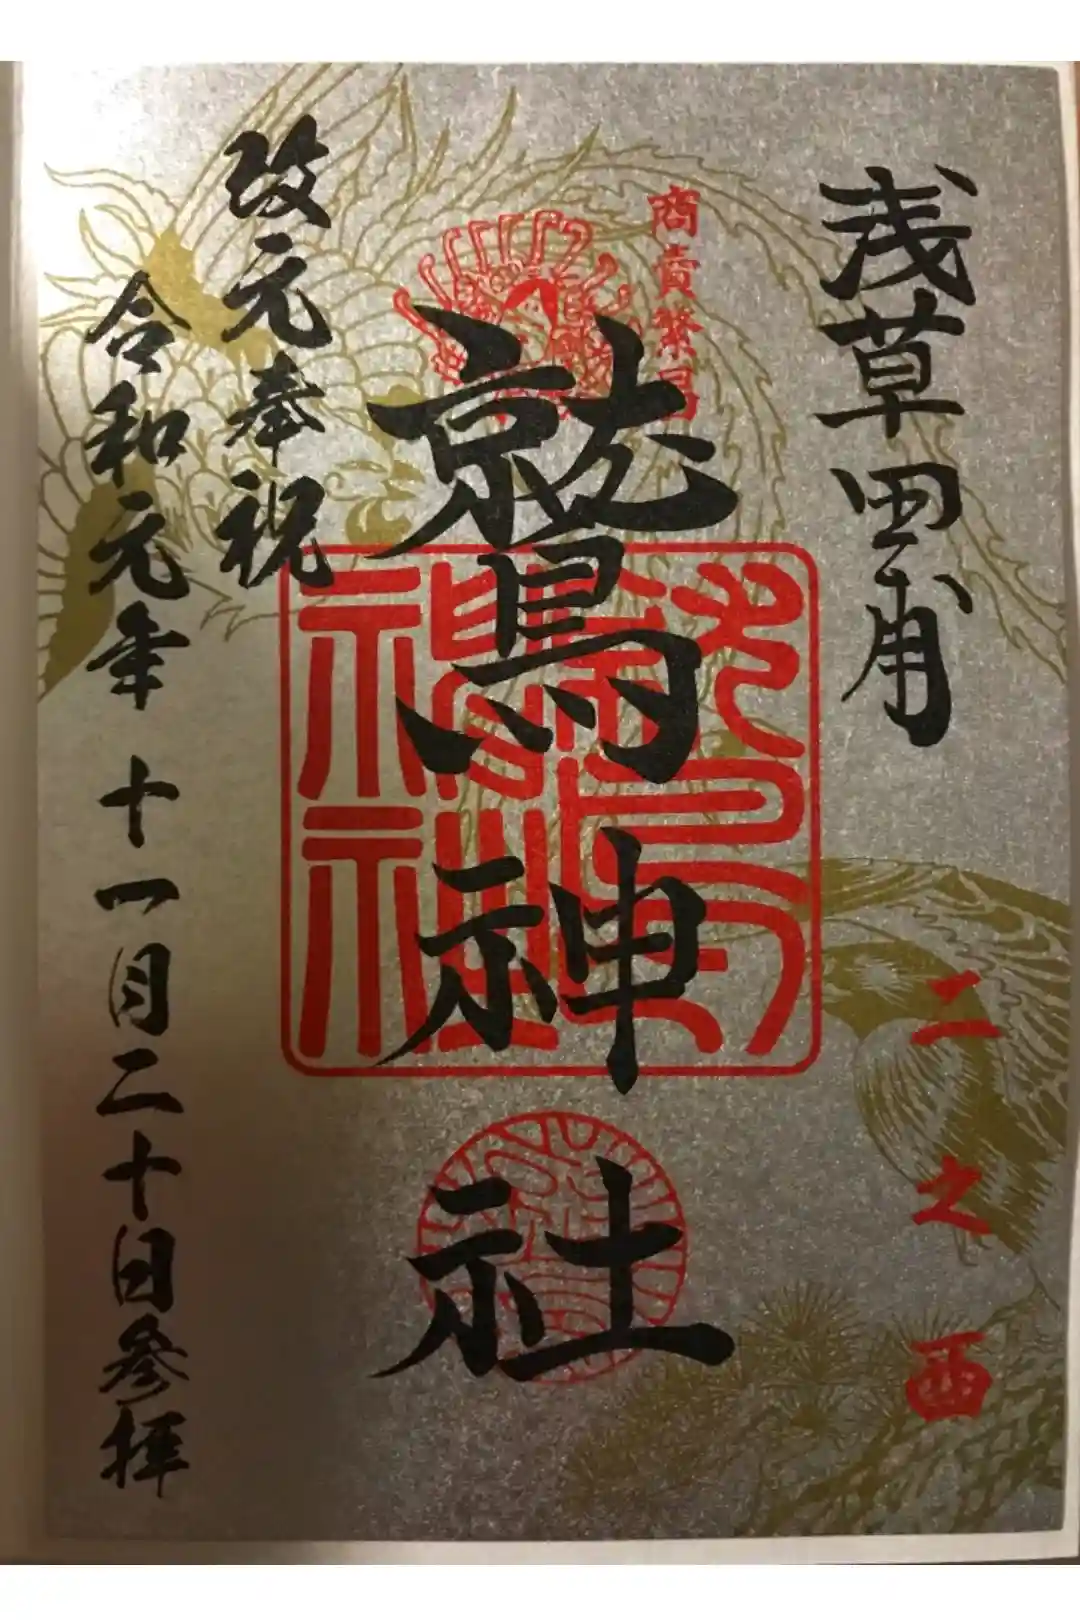 浅草田甫
二之酉
商賣繁昌
鷲神社
改元奉祝
令和元年十一月二十日参拝